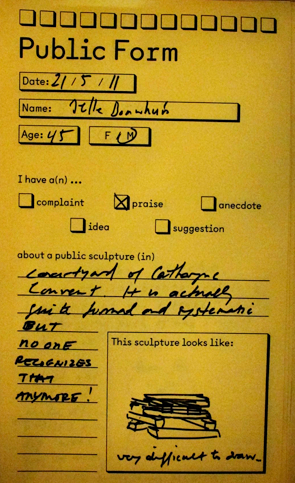 Public Form
Date: 21/5/11
Name: Jelle
Age: 45 F M
I have a(n) ...
complaint praise anecdote
idea suggestion
about a public sculpture (in)
courtyard of Catharyne
Convent. It is actually
quite formal and systematic
BUT
NO ONE
RECOGNIZES
THAT
ANYMORE!
This sculpture looks like:
very difficult to draw